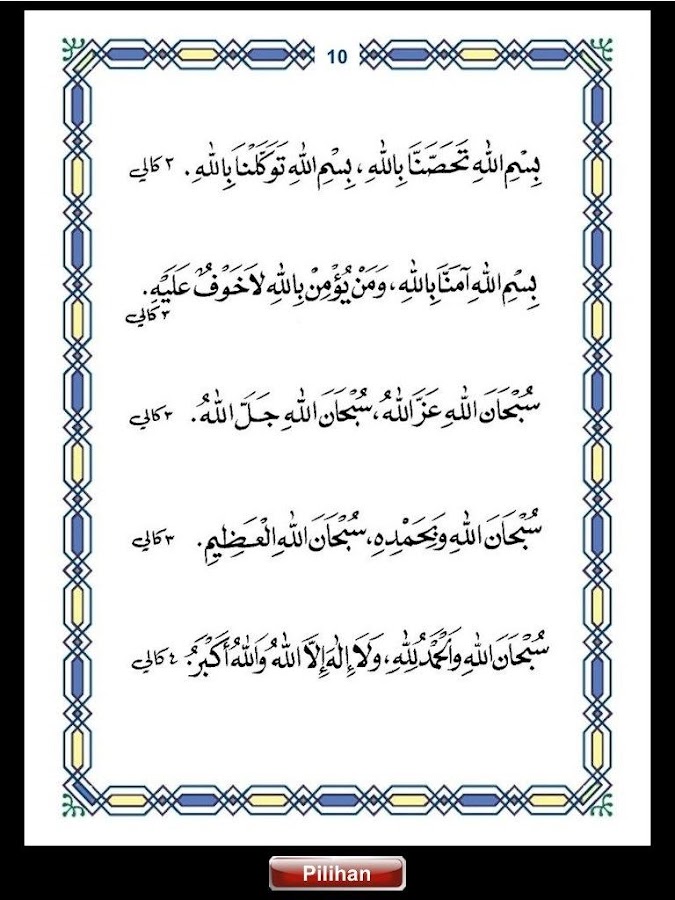 10
بِسْمِ اللهِ تَحَصَّنَّا بِاللهِ، بِسْمِ اللهِ تَوَكَّلْنَا بِاللهِ. ٢ كالي
بِسْمِ اللهِ آمَنَّا بِاللهِ، وَمَنْ يُؤْمِنْ بِاللهِ لاَ خَوْفٌ عَلَيْهِ.
٣ كالي
سُبْحَانَ اللهِ عَزَّ اللهُ، سُبْحَانَ اللهِ جَلَّ اللهُ. ٣ كالي
سُبْحَانَ اللهِ وَبِحَمْدِهِ، سُبْحَانَ اللهِ الْعَظِيمِ. ٣ كالي
سُبْحَانَ اللهِ وَالْحَمْدُ لِلّٰهِ، وَلاَ إِلٰهَ إِلاَّ اللهُ وَاللهُ أَكْبَرُ. ٤ كالي
Pilihan